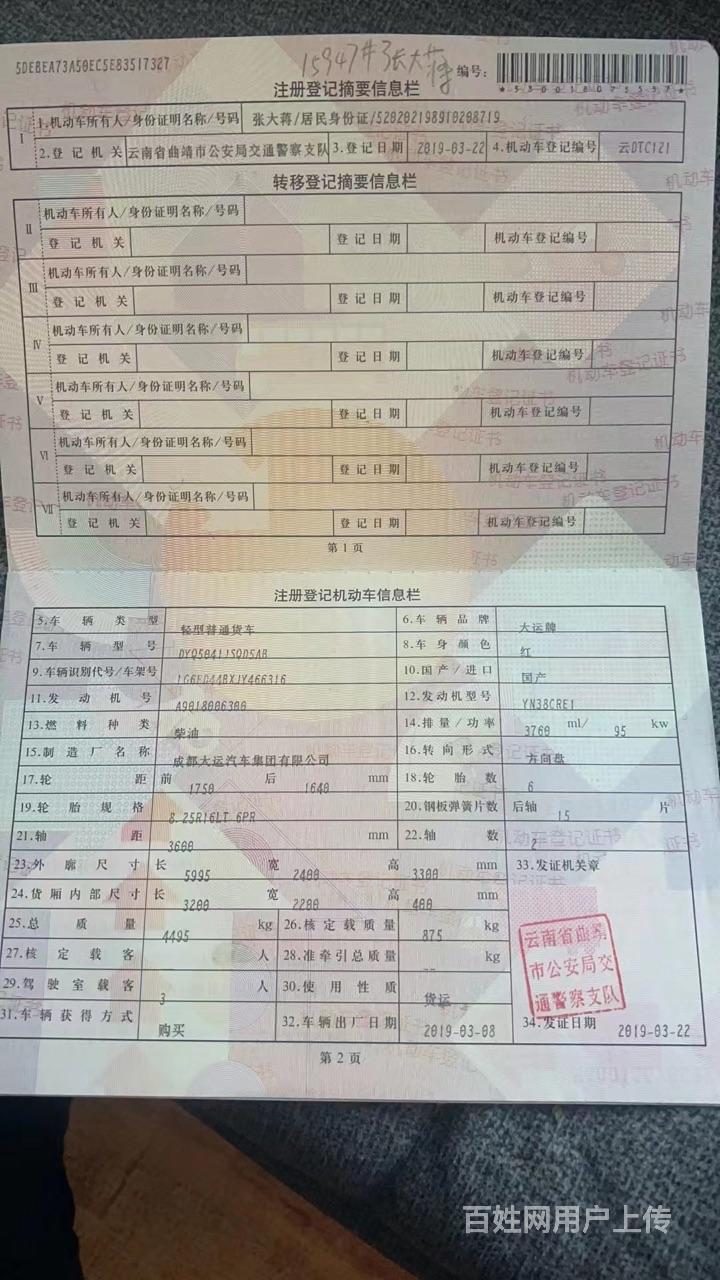 5DEBEA73A50EC5E83517327
15947# 张大蒋
编号：
*530018075557*
注册登记摘要信息栏
Ⅰ 1.机动车所有人/身份证明名称/号码 张大蒋/居民身份证/520202198910208719
2.登记机关 云南省曲靖市公安局交通警察支队 3.登记日期 2019-03-22 4.机动车登记编号 云DTC121
转移登记摘要信息栏
Ⅱ 机动车所有人/身份证明名称/号码
登记机关 登记日期 机动车登记编号
Ⅲ 机动车所有人/身份证明名称/号码
登记机关 登记日期 机动车登记编号
Ⅳ 机动车所有人/身份证明名称/号码
登记机关 登记日期 机动车登记编号
Ⅴ 机动车所有人/身份证明名称/号码
登记机关 登记日期 机动车登记编号
Ⅵ 机动车所有人/身份证明名称/号码
登记机关 登记日期 机动车登记编号
Ⅶ 机动车所有人/身份证明名称/号码
登记机关 登记日期 机动车登记编号
第1页
注册登记机动车信息栏
5.车辆类型 轻型普通货车 6.车辆品牌 大运牌
7.车辆型号 DYQ5041JSQD5AB 8.车身颜色 红
9.车辆识别代号/车架号 LG6ED44BXJY466316 10.国产/进口 国产
11.发动机号 A9018006300 12.发动机型号 YN38CRE1
13.燃料种类 柴油 14.排量/功率 3760 ml/ 95 kw
15.制造厂名称 成都大运汽车集团有限公司 16.转向形式 方向盘
17.轮距 前 1750 后 1640 mm 18.轮胎数 6
19.轮胎规格 8.25R16LT 6PR 20.钢板弹簧片数 后轴 15 片
21.轴距 3600 mm 22.轴数 2
23.外廓尺寸 长 5995 宽 2400 高 3300 mm 33.发证机关章
24.货厢内部尺寸 长 3200 宽 2200 高 400 mm
25.总质量 4495 kg 26.核定载质量 875 kg
27.核定载客 人 28.准牵引总质量 -- kg
29.驾驶室载客 3 人 30.使用性质 货运
云南省曲靖
市公安局交
通警察支队
31.车辆获得方式 购买 32.车辆出厂日期 2019-03-08 34.发证日期 2019-03-22
第2页
百姓网用户上传